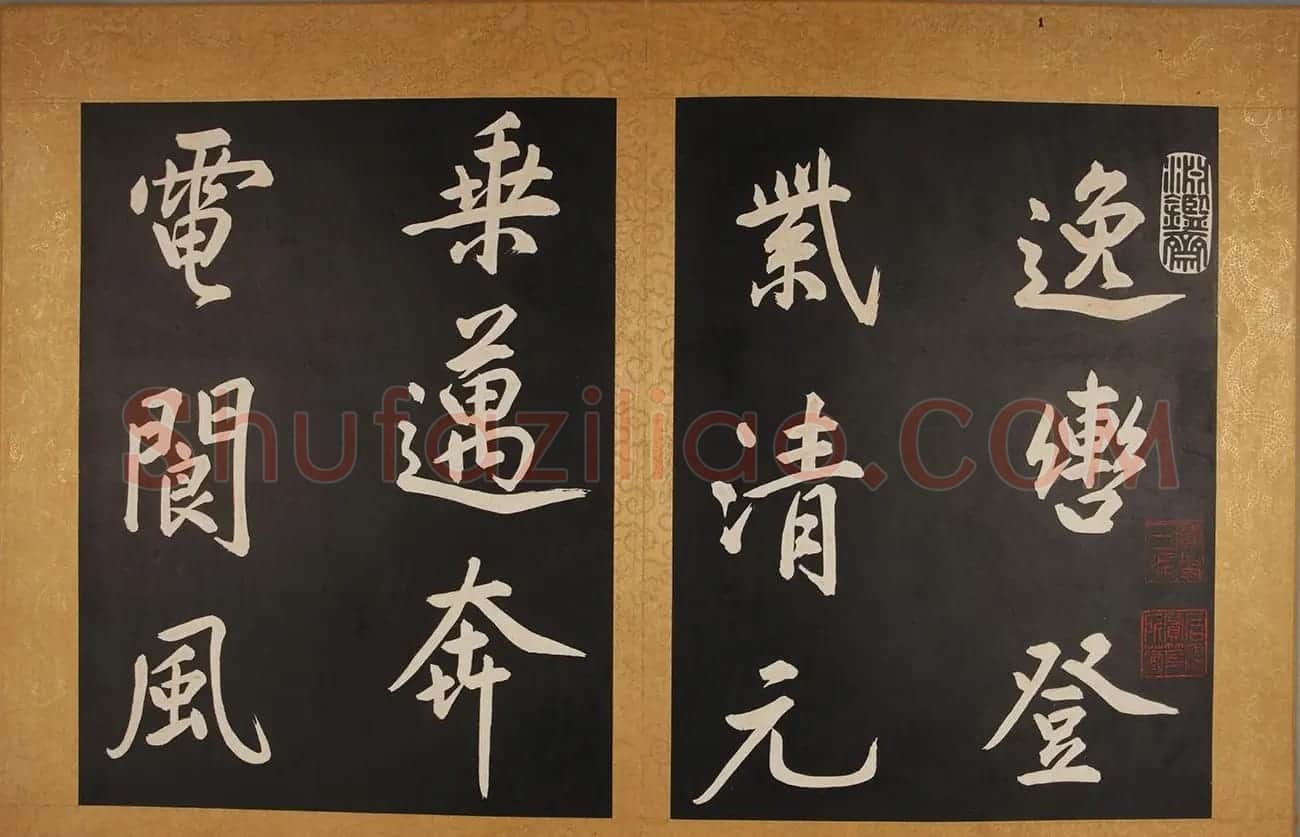 淵鑑齋
逸轡登
紫清元
乘邁奔
電閬風
Shufaziliao.COM